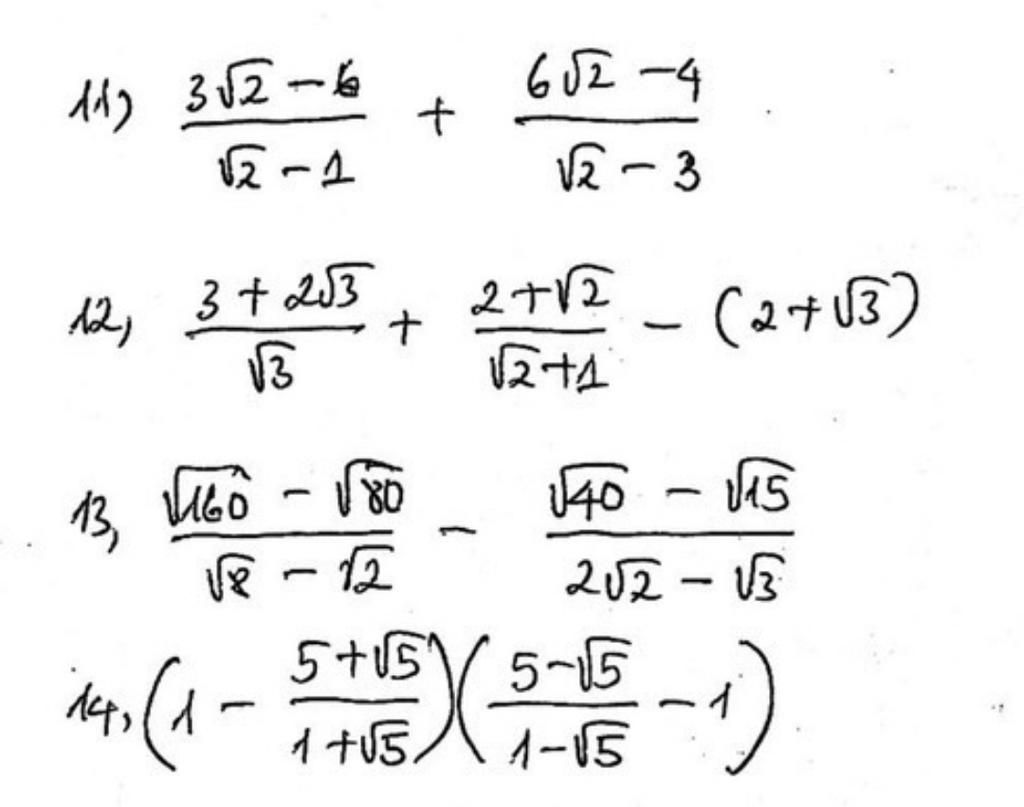 11) \frac{3\sqrt{2} - 6}{\sqrt{2} - 1} + \frac{6\sqrt{2} - 4}{\sqrt{2} - 3}
12, \frac{3 + 2\sqrt{3}}{\sqrt{3}} + \frac{2 + \sqrt{2}}{\sqrt{2} + 1} - (2 + \sqrt{3})
13, \frac{\sqrt{160} - \sqrt{80}}{\sqrt{8} - \sqrt{2}} - \frac{\sqrt{40} - \sqrt{15}}{2\sqrt{2} - \sqrt{3}}
14, \left(1 - \frac{5 + \sqrt{5}}{1 + \sqrt{5}}\right)\left(\frac{5 - \sqrt{5}}{1 - \sqrt{5}} - 1\right)